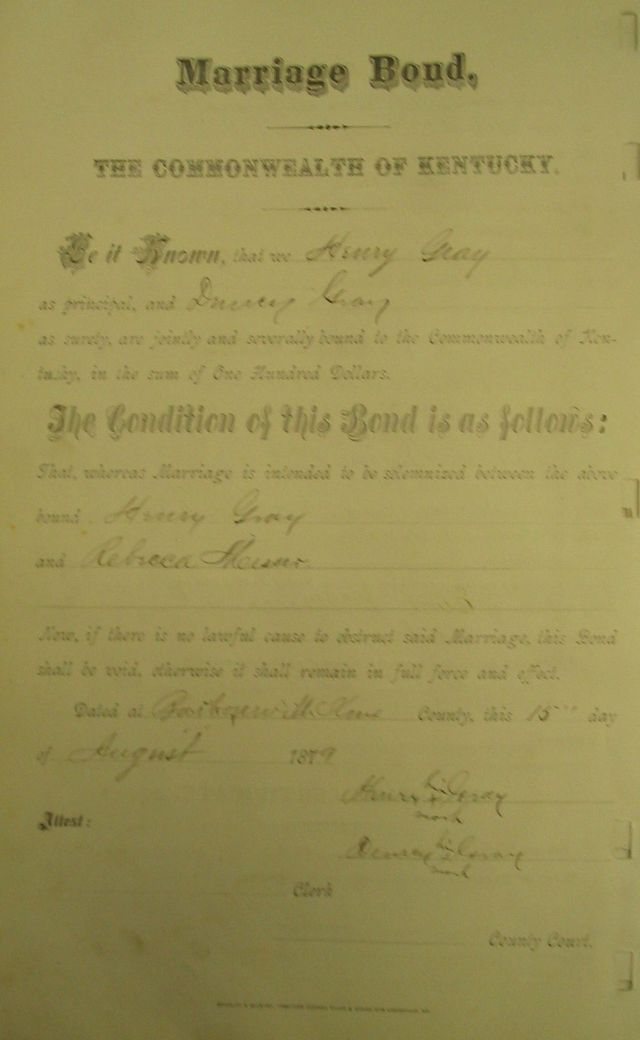 Marriage Bond,
THE COMMONWEALTH OF KENTUCKY.
Be it Known, that we Henry Gray
as principal, and Gray
as surety, are jointly and severally bound to the Commonwealth of Ken-
tucky, in the sum of One Hundred Dollars.
The Condition of this Bond is as follows:
That, whereas Marriage is intended to be solemnized between the above
bound Henry Gray
and Rebecca
Now, if there is no lawful cause to obstruct said Marriage, this Bond
shall be void, otherwise it shall remain in full force and effect.
Dated at Barbourville Knox County, this 15th day
of August 1879
his
Henry x Gray
mark
Attest:
his
x Gray
mark
Clerk
County Court.